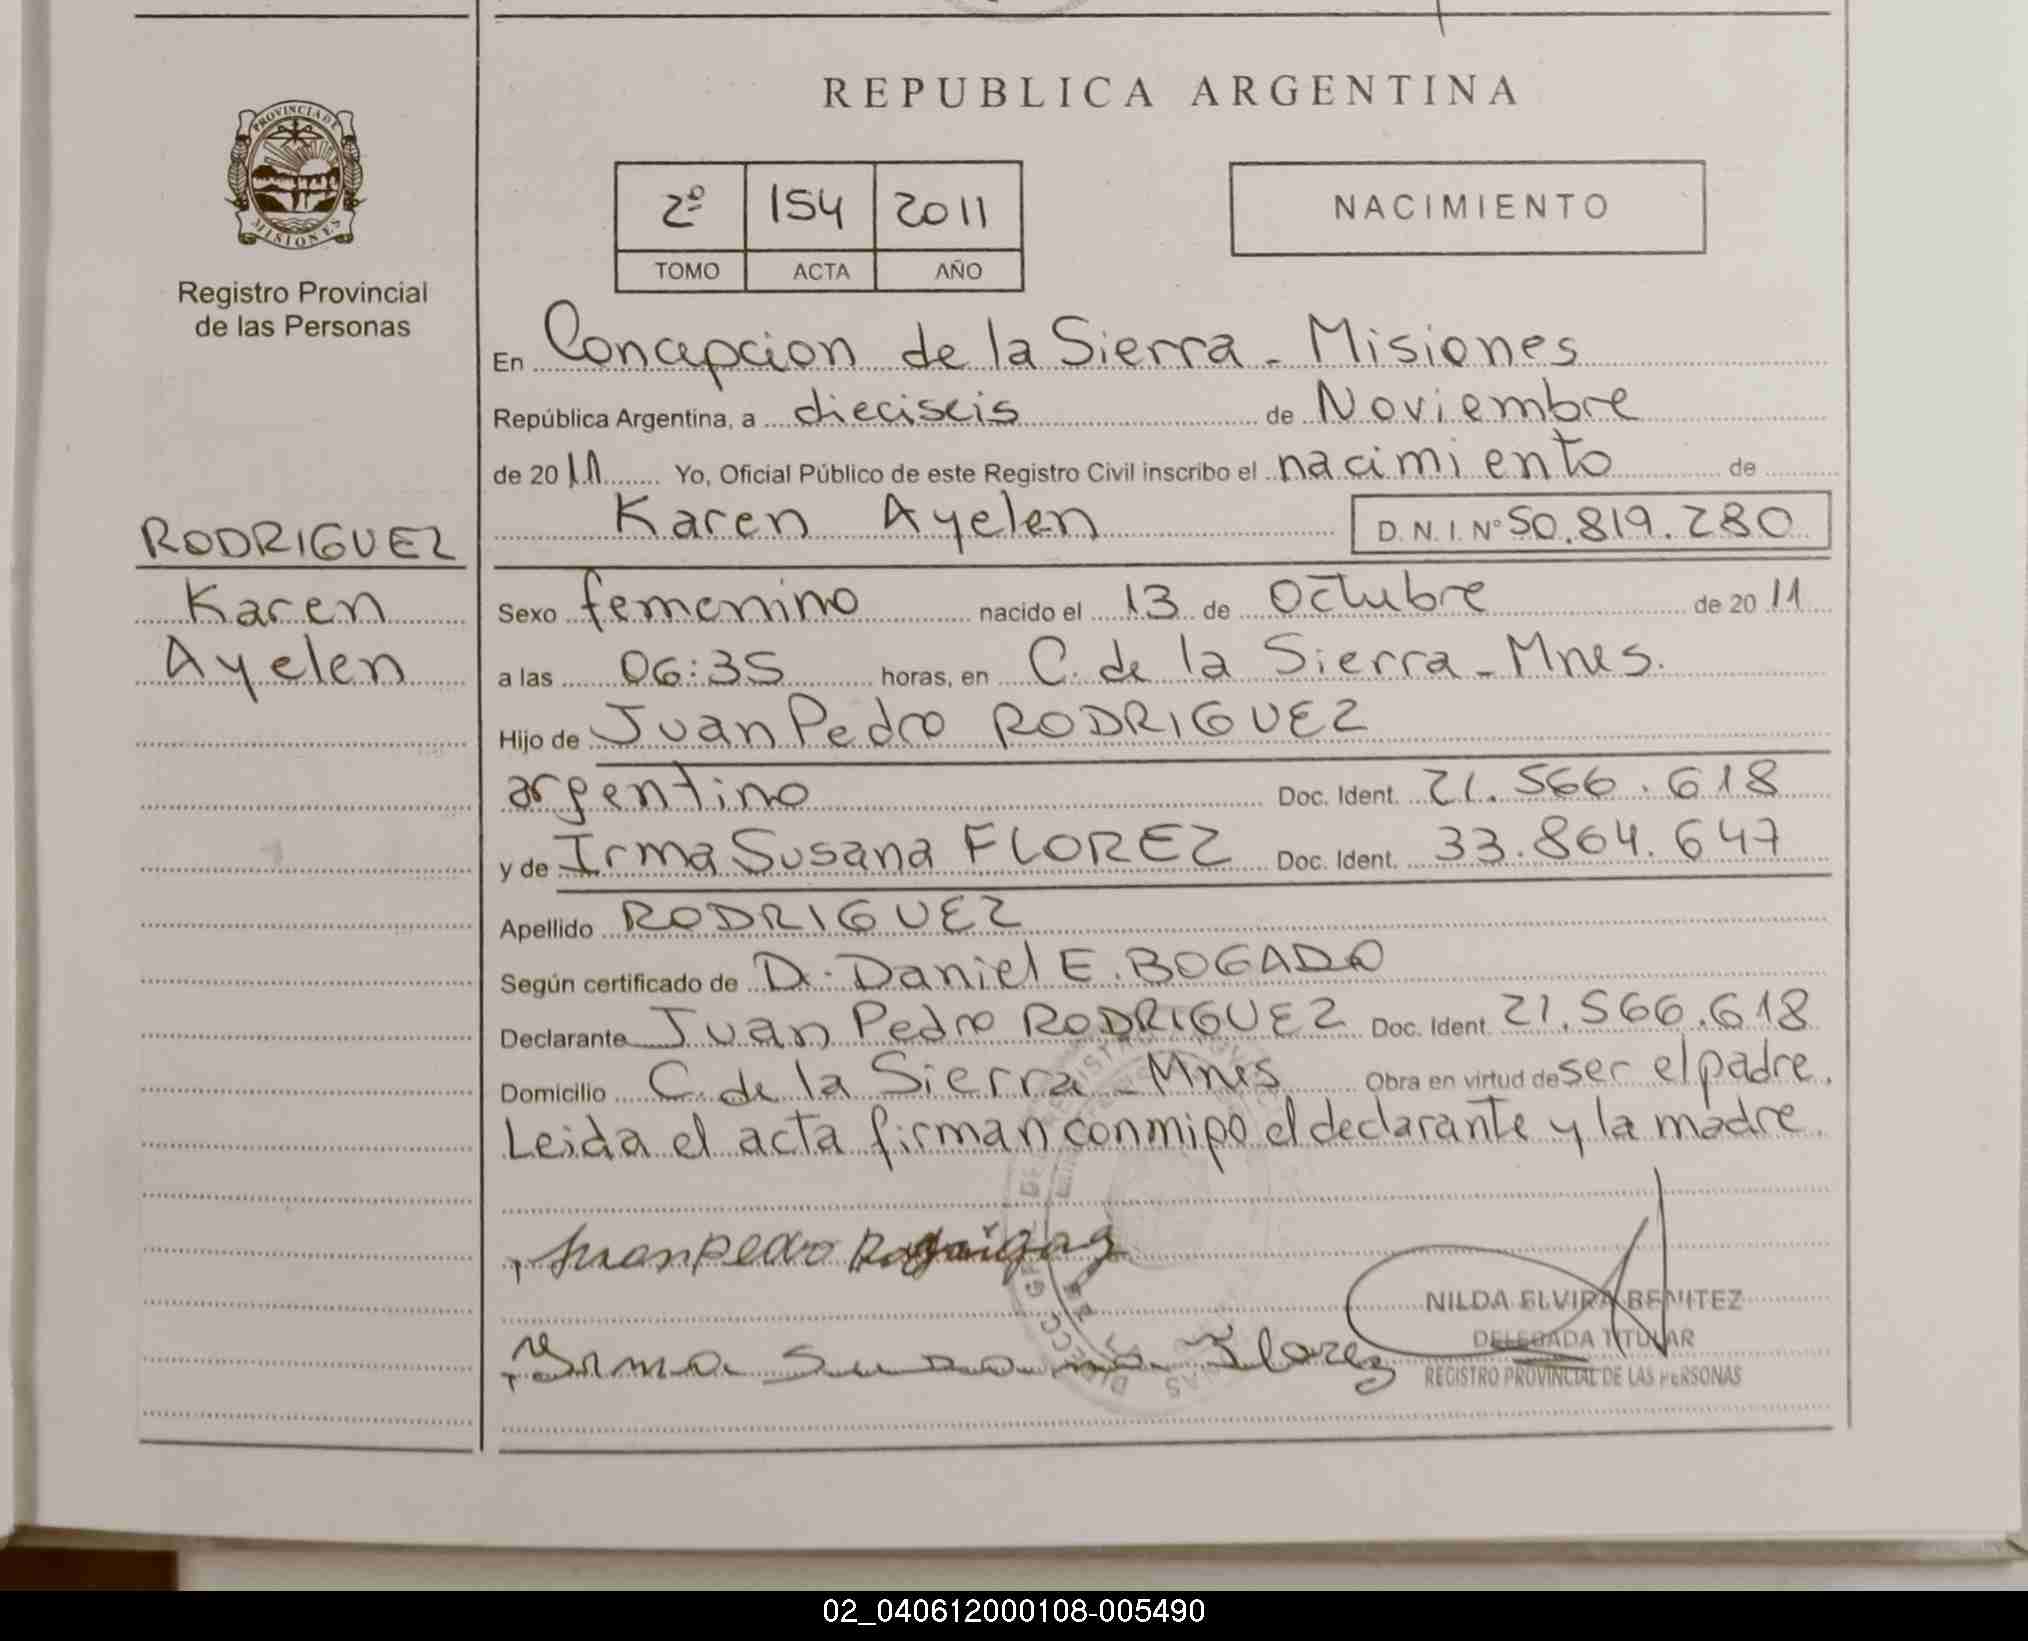 REPUBLICA ARGENTINA
PROVINCIA DE
MISIONES
Registro Provincial
de las Personas
2º 154 2011
TOMO ACTA AÑO
NACIMIENTO
En Concepcion de la Sierra - Misiones
República Argentina, a dieciseis de Noviembre
de 2011 Yo, Oficial Público de este Registro Civil inscribo el nacimiento de
Karen Ayelen D. N. I. Nº 50.819.280
RODRIGUEZ
Karen
Ayelen
Sexo femenino nacido el 13 de Octubre de 20 11
a las 06:35 horas, en C. de la Sierra - Mnes.
Hijo de Juan Pedro RODRIGUEZ
argentino Doc. Ident. 21.566.618
y de Irma Susana FLOREZ Doc. Ident. 33.864.647
Apellido RODRIGUEZ
Según certificado de D. Daniel E. BOGADO
Declarante Juan Pedro RODRIGUEZ Doc. Ident. 21.566.618
Domicilio C. de la Sierra - Mnes Obra en virtud de ser el padre.
Leida el acta firman conmigo el declarante y la madre.
Juan Pedro
Irma Susana Florez
NILDA ELVIRA BENITEZ
DELEGADA TITULAR
REGISTRO PROVINCIAL DE LAS PERSONAS
02_040612000108-005490